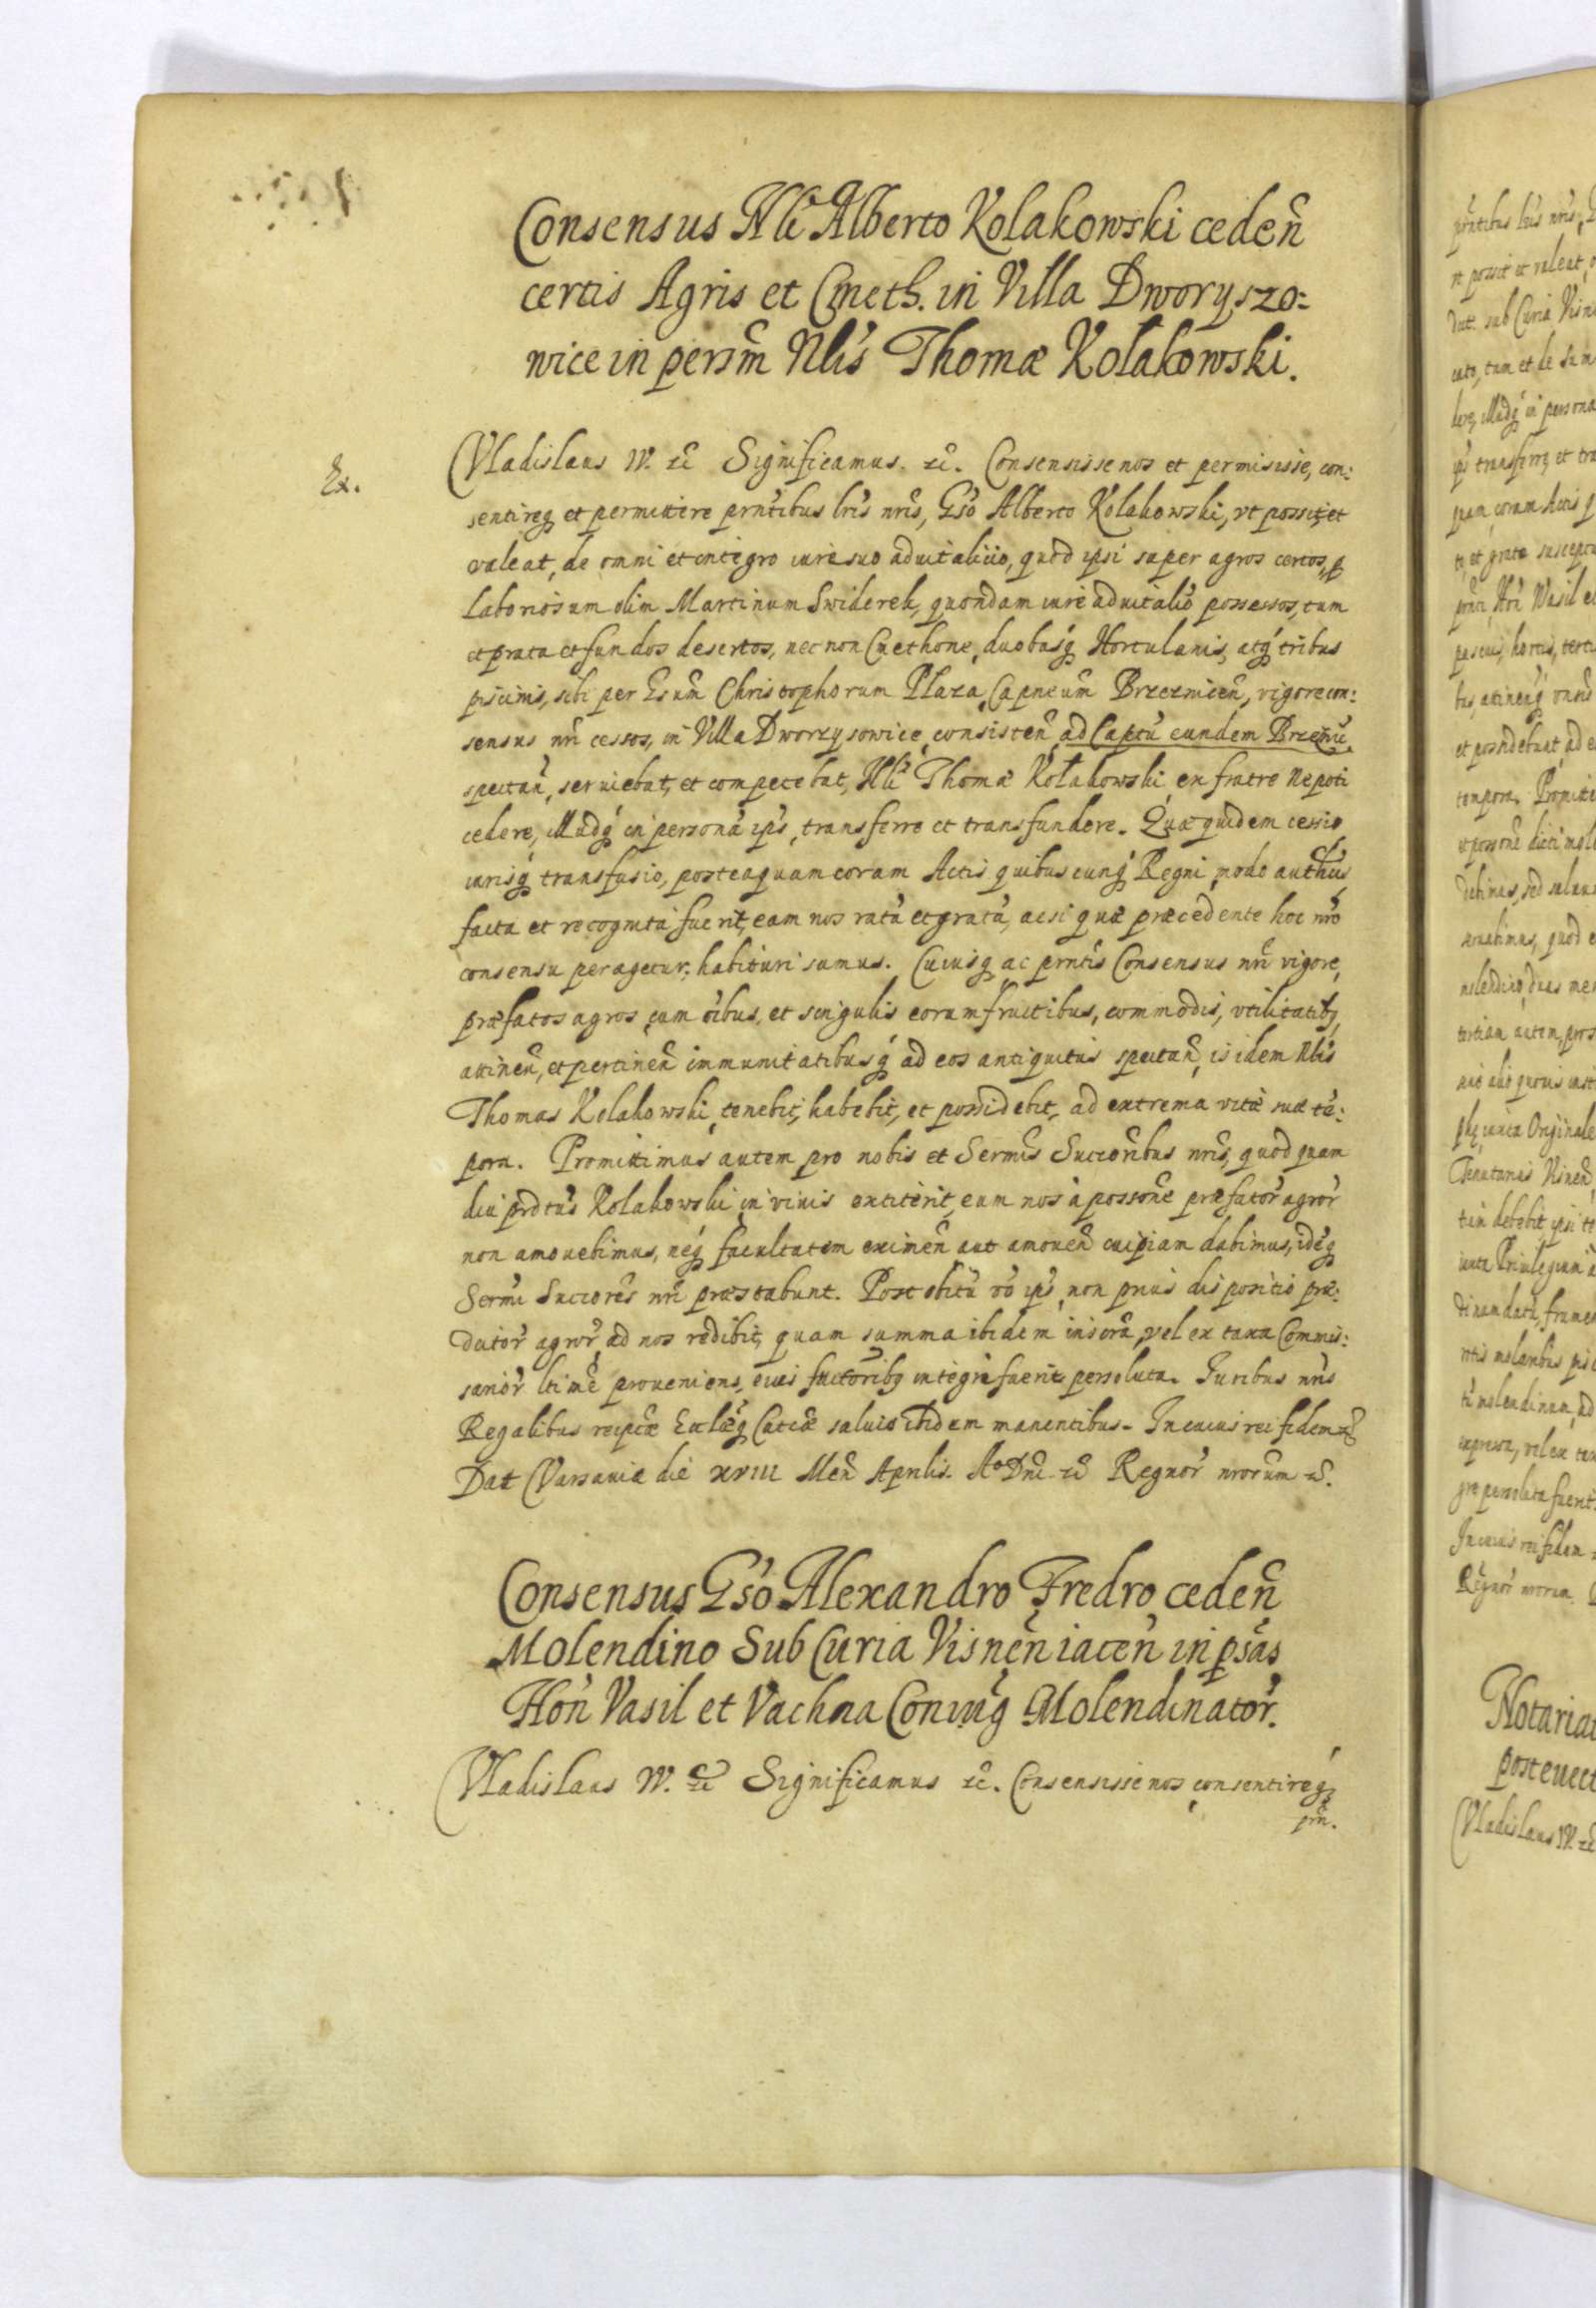 Consensus Nli Alberto Kolakowski ceden̄
certis Agris et Cmeth. in Villa Dworyszo:
wice in persm̄ Nlis Thomæ Kolakowski.
Ex.
Vladislaus IV. etc̄ Significamus. etc̄. Consensisse nos et permisisse, con:
sentireq; et permittere prn̄tibus lr̄is nr̄is, Gs̄o Alberto Kolakowski, vt possit, et
valeat, de omni et integro iure suo aduitalitio, quod ipsi super agros certos, p
Laboriosum olim Martinum Swiderek, quondam iure aduitalio possessos, tum
et prata et fundos desertos, nec non Cmethone, duobusq; Hortulanis, atq; tribus
piscinis, sibi per Gsum̄ Christophorum Plaza, Capneum̄ Brzeznicen̄, vigore con:
sensus nr̄i cessos, in Villa Dworzysowice, consisten̄ ad Captū eundem Brzeznicē
spectan̄, seruiebat, et competebat, Nli Thomæ Kolakowski, ex fratre Nepoti
cedere, illudq; in personā ips̄, transferre et transfundere. Quæ quidem cessio
iurisq; transfusio, posteaquam coram Actis quibuscunq; Regni, modo authcis
facta et recognita fuerit, eam nos ratā et gratā, acsi quæ præcedente hoc nr̄o
consensu perageretur, habituri sumus. Cuiusq; ac prn̄tis Consensus nr̄i vigore,
præfatos agros cum oībus, et singulis eorum fructibus, commodis, vtilitatibq;
attinen̄, et pertinen̄ immunitatibusq; ad eos antiquitus spectan̄, is idem Nlis
Thomas Kolakowski, tenebit, habebit, et possidebit, ad extrema vitæ suæ tē:
pora. Promittimus autem pro nobis et Serm̄is Succoribus nr̄is, quod quam
diu prdtus Kolakowski in viuis extiterit, eum nos à possone præfator̄ agror̄
non amouebimus, neq; facultatem eximen̄ aut amouen̄ cuipiam dabimus, idq;
Serm̄i Succores nr̄i præstabunt. Post obitū vō ips̄, non prius dispositio præ:
dictor̄ agror̄, ad nos redibit, quam summa ibidem inscrā, vel ex taxa Commis:
sarior̄ ltimē proueniens, eius suctoribq; integrè fuerit persoluta. Iuribus nr̄is
Regalibus reipcæ Ecclæq; Catcæ saluis ibidem manentibus. In cuius rei fidem etc̄
Dat Varsauiæ die XVIII Men̄ Aprilis. Aº Dn̄i etc̄ Regnor̄ nrorum̄ etc̄.
Consensus Gs̄o Alexandro Fredro ceden̄
Molendino Sub Curia Visnen̄ iacen̄ in psas̄
Hon̄ Vasil et Vachna Coniuḡ Molendinator̄.
Vladislaus IV. etc̄ Significamus etc̄. Consensisse nos, consentireq;
prn̄.